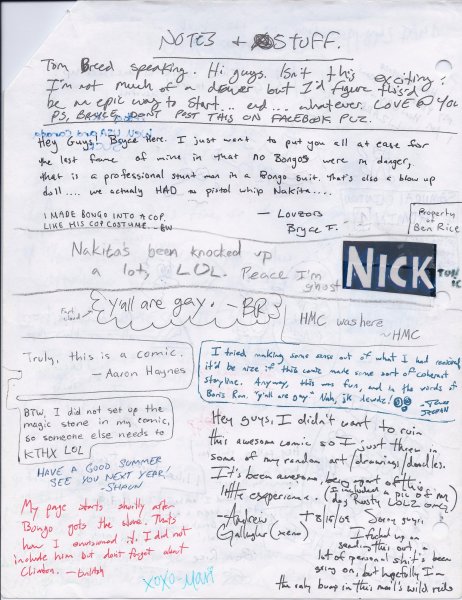 NOTES + STUFF.
Tom Breed speaking. Hi guys. Isn't this exciting?
I'm not much of a drawer but I'd figure this'd
be an epic way to start... end... whatever. LOVE @ YOU
PS. BRYCE, DON'T POST THIS ON FACEBOOK PLZ.
Hey Guys! Bryce Here. I just want to put you all at ease for
the last frame of mine in that no Bongos were in danger,
that is a professional stunt man in a Bongo suit. That's also a blow up
doll.... we actually HAD to pistol whip Nakita....
I MADE BONGO INTO A COP.
LIKE HIS COP COSTUME. -BW
- Bryce F.
Property of
Ben Rice
Nakita's been knocked up
a lot, LOL. Peace I'm
ghost
NICK
Fart
cloud
y'all are gay. -BR
HMC was here
~HMC
Truly, this is a comic.
- Aaron Haynes
I tried making some sense out of what I had received
it'd be nice if this comic made some sort of coherent
storyline. Anyway, this was fun, and in the words of
Boris Ron. "y'all are gay" Nah, jk dewds!
BTW, I did not set up the
magic stone in my comic,
so someone else needs to
KTHX LOL
HAVE A GOOD SUMMER
SEE YOU NEXT YEAR!
-SHAWN
Hey guys, I didn't want to ruin
this awesome comic so I just threw in
some of my random art/drawings/doodles.
It's been awesome being part of this
little experience. (I included a pic of my
dog Rusty LOLZ omg)
-Andrew
Gallagher (xeno)
8/16/09
Sorry guys
I fucked up on
sending this out, a
lot of personal shit's been
going on, but hopefully I'm
the only bump in this mail's wild ride
My page starts shortly after
Bongo gets the stone. That's
how I envisioned it. I did not
include him but don't forget about
Climbon.
xoxo-Mari